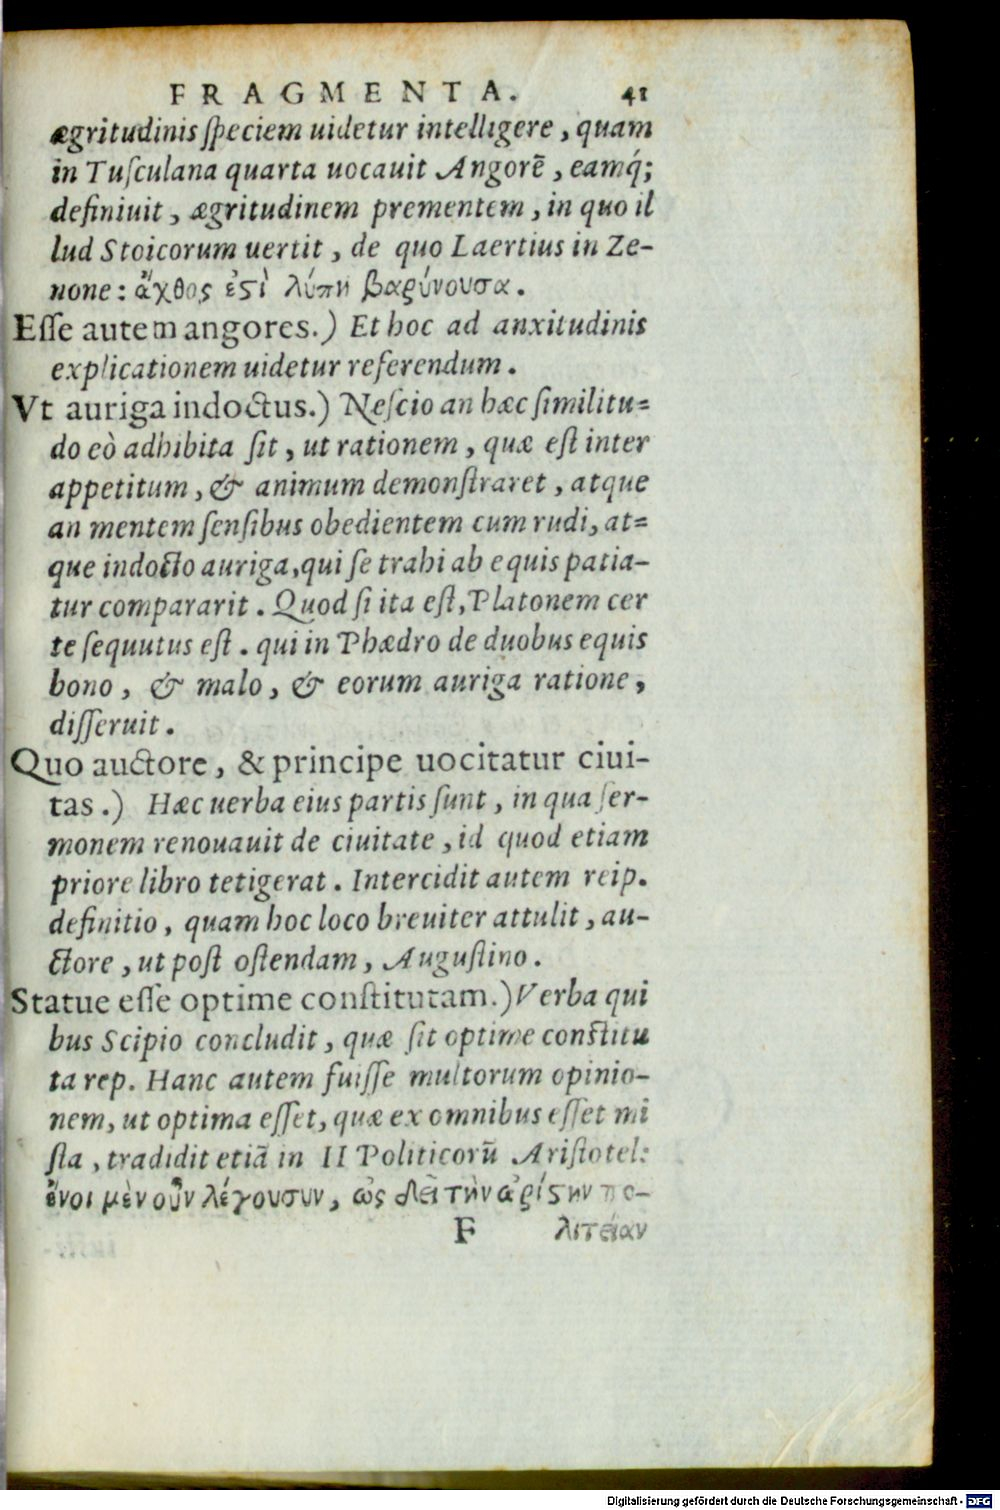 FRAGMENTA. 41
ægritudinis ſpeciem uidetur intelligere, quam
in Tuſculana quarta uocauit Angorē, eamq́;
definiuit, ægritudinem prementem, in quo il
lud Stoicorum uertit, de quo Laertius in Ze-
none: ἄχθος ἐςὶ λύπη βαρύνουσα.
Eſſe autem angores.) Et hoc ad anxitudinis
explicationem uidetur referendum.
Vt auriga indoctus.) Neſcio an hæc ſimilitu=
do eò adhibita ſit, ut rationem, quæ eſt inter
appetitum, & animum demonſtraret, atque
an mentem ſenſibus obedientem cum rudi, at=
que indocto auriga, qui ſe trahi ab equis patia-
tur compararit. Quod ſi ita eſt, Platonem cer
te ſequutus eſt. qui in Phædro de duobus equis
bono, & malo, & eorum auriga ratione,
diſſeruit.
Quo auctore, & principe uocitatur ciui-
tas.) Hæc uerba eius partis ſunt, in qua ſer-
monem renouauit de ciuitate, id quod etiam
priore libro tetigerat. Intercidit autem reip.
definitio, quam hoc loco breuiter attulit, au-
ctore, ut poſt oſtendam, Auguſtino.
Statue eſſe optime conſtitutam.) Verba qui
bus Scipio concludit, quæ ſit optime conſtitu
ta rep. Hanc autem fuiſſe multorum opinio-
nem, ut optima eſſet, quæ ex omnibus eſſet mi
ſta, tradidit etiā in II Politicorū Ariſtotel:
ἔνοι μὲν οὖν λέγουσυν, ὡς δεῖ τὴν ἀρίςην πο-
F λιτείαν
Digitalisierung gefördert durch die Deutsche Forschungsgemeinschaft - DFG